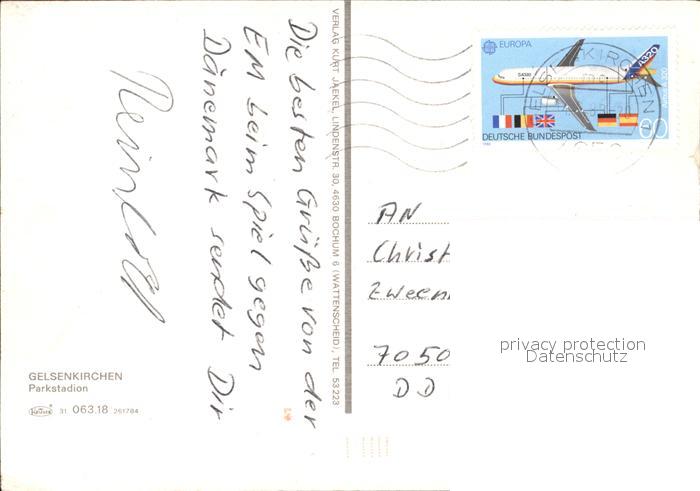 Die besten Grüße von der
EM beim Spiel gegen
Dänemark sendet Dir
Reinhold
GELSENKIRCHEN
Parkstadion
31 063.18 261784
VERLAG KURT JAEKEL, LINDENSTR. 30, 4630 BOCHUM 6 (WATTENSCHEID), TEL. 53223
EUROPA
A320
DEUTSCHE BUNDESPOST
60
GELSENKIRCHEN
AN
Christ
Zween
7050
DD
privacy protection
Datenschutz